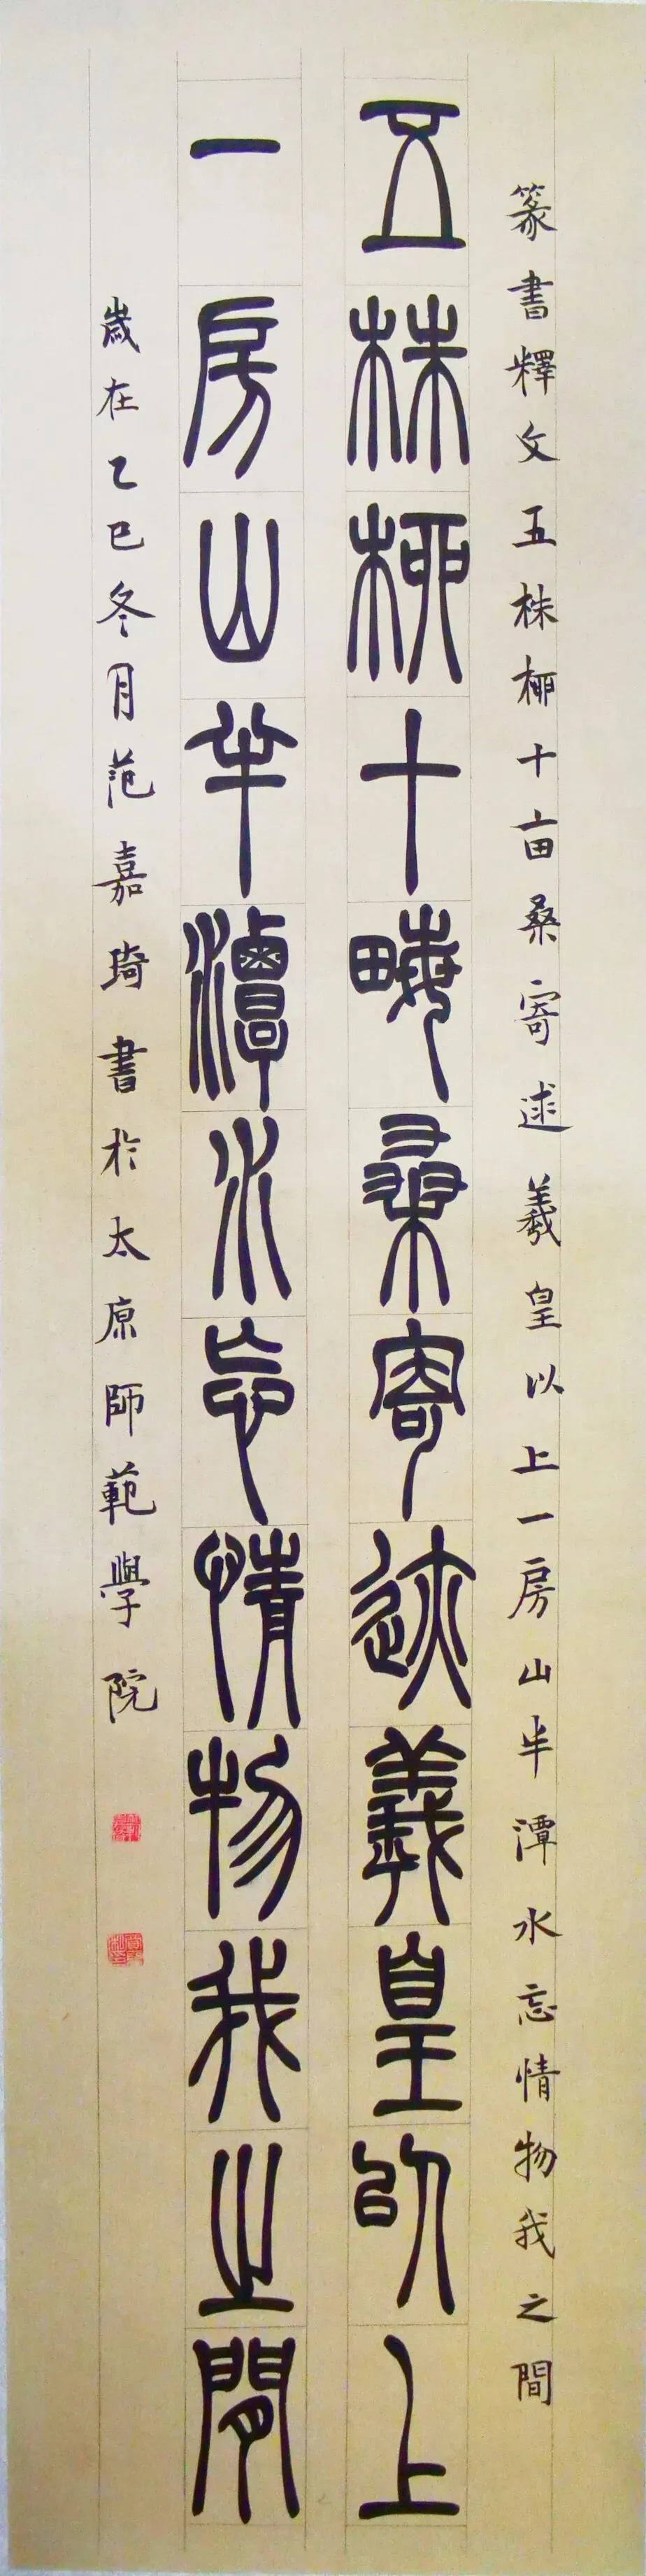 篆書釋文五株柳十亩桑寄迹羲皇以上一房山半潭水忘情物我之間
五株柳十畮桑寄迹羲皇以上
一房山半潭水忘情物我之間
歲在乙巳冬月范嘉琦書於太原師範學院